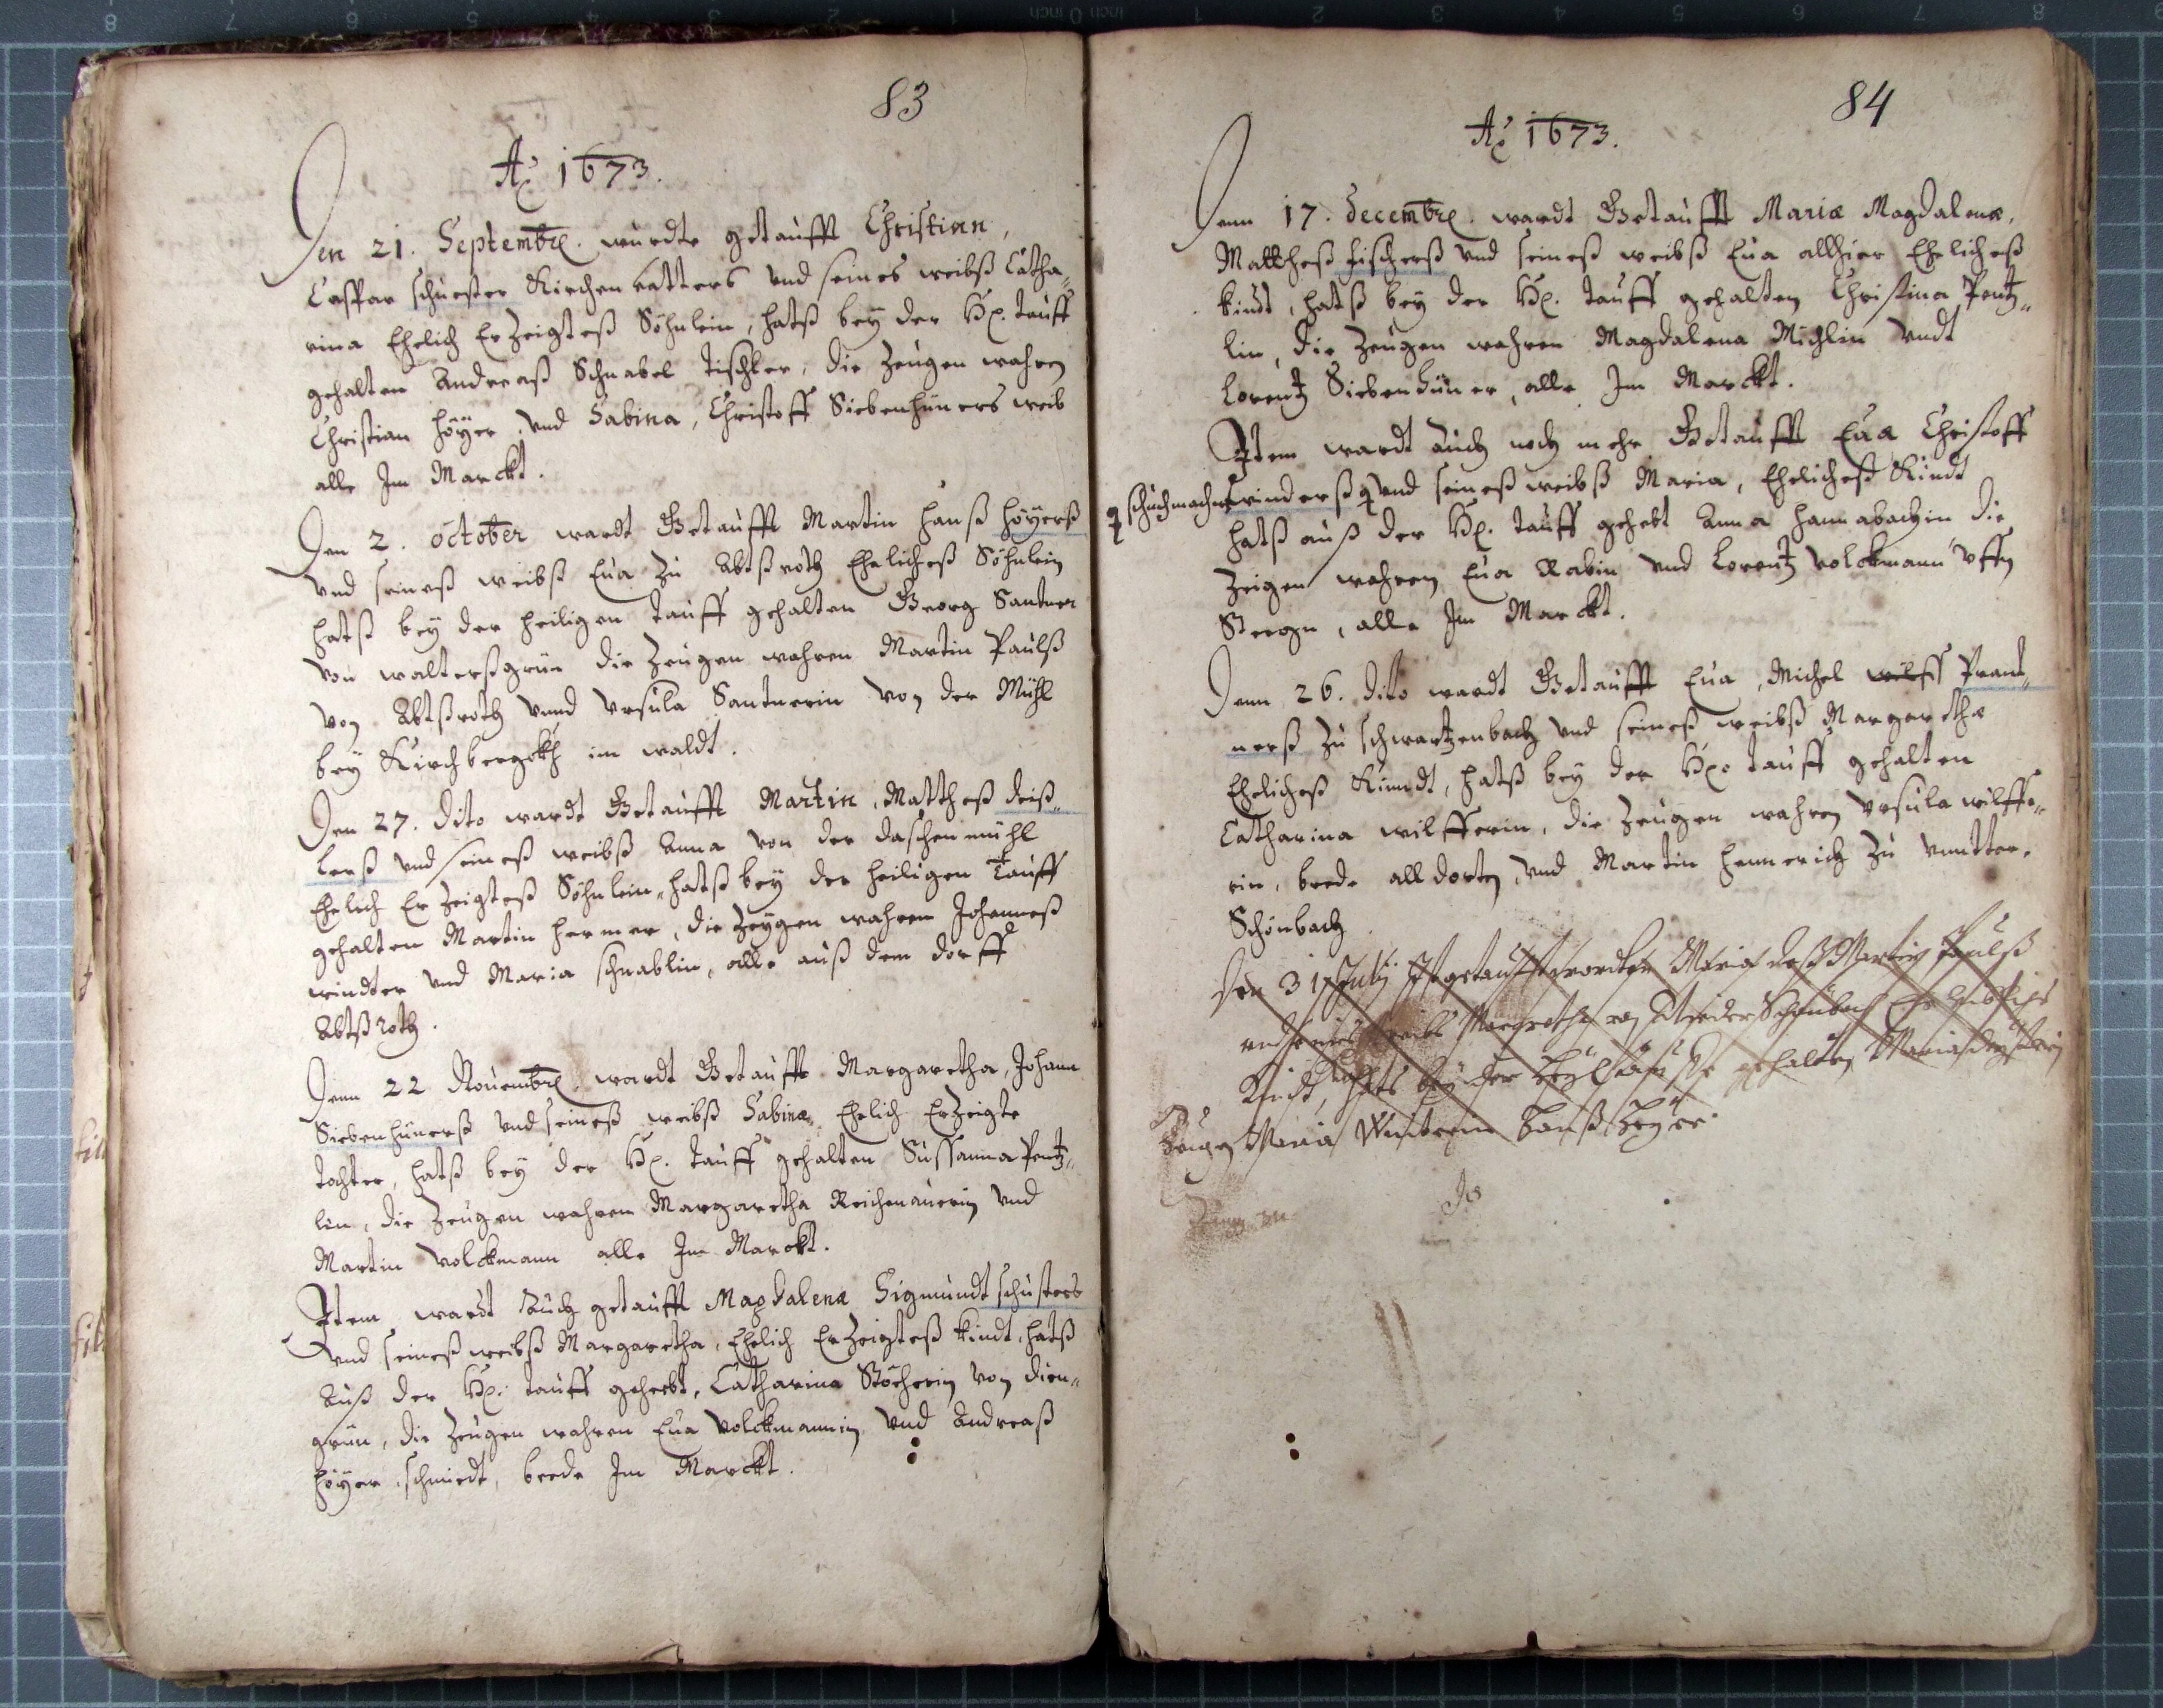 8 7 6 5 4 3 2 1 inch 0 inch 1 2 3 4 5 6 7 8
83
Ao 1673.
Den 21. Septembr. wurdte getaufft Christian,
Caspar schuester Kirchenvatters vnd seines weibß Catha„
rina Ehelich Erzeigteß Söhnlein, hatß bey der Hl. tauff
gehalten Andreaß Schnabel tischler, die Zeugen wahren
Christian höyer vnd Sabina, Christoff Siebenhüners weib
alle Im Marckt.
Den 2. october wardt Getaufft Martin hanß höyerß
vnd seineß weibß Eua zu Abtßroth Ehelicheß Söhnlein
hatß bey der heiligen tauff gehalten Georg Santner
von waltersgrün die Zeugen wahren Martin Paulß
von Abtßroth vnnd Vrsula Santnerin von der Mühl
bey Kirchbergkh im waldt.
Den 27. dito wardt Getaufft Martin, Mattheß deiß„
lerß vnd seineß weibß Anna von der daschenmühl
Ehelich Erzeigteß Söhnlein, hatß bey der heiligen Tauff
gehalten Martin hermer, die Zeygen wahren Johanneß
windter vnd Maria schnablin, alle auß dem dorff
Abtßroth.
Denn 22 Nouembr. wardt Getaufft Margaretha, Johann
Siebenhünerß vnd seineß weibß Sabina, Ehelich Erzeigte
tochter, hatß bey der Hl. tauff gehalten Sussanna Pentz„
lin, die Zeugen wahren Margaretha Reichenauerin vnd
Martin Volckmann alle Im Marckt.
Item wardt Auch getaufft Magdalena Sigmundt schusters
vnd seineß weibß Margaretha, Ehelich Erzeigteß kindt, hatß
Auß der Hl. tauff gehebt, Catharina Stöcherin von dirn„
grün, die Zeugen wahren Eua Volckmannin vnd Andreaß
höyer schmiedt, beede Im Marckt.
84
Ao 1673.
Denn 17. Decembr. wardt Getaufft Maria Magdalena,
Mattheß fischerß vnd seineß weibß Eua allhier Ehelicheß
kindt, hatß bey der Hl. tauff gehalten Christina Pentz„
lin, die Zeugen wahren Magdalena Michlin vndt
Lorentz Siebenhüner, alle Im Marckt.
Item wardt auch noch mehr Getaufft Eua Christoff
schuchmacher
winderß vnd seineß weibß Maria, Ehelicheß Kindt
hatß auß der Hl. tauff gehebt Anna hannabachin die
Zeigen wahren Eua Rabin vnd Lorentz Volckmann vffn
Steegn, alle Im Marckt.
Denn 26. dito wardt Getaufft Eua, Michel Prant„
nerß zu schwartzenbach vnd seineß weibß Margaretha
Ehelicheß Kindt, hatß bey der Hl. tauff gehalten
Catharina wilfferin, die Zeugen wahren Vrsula wilffe„
rin, beede alldorten, vnd Martin hennerich zu vntter„
Schönbach
Den 31 Julij Ist getaufft worden Maria deß Martin Paulß
vnd seines weibs Margretha von Schönbach
Kindt, hats bey der gehalten Maria
Zeugen Maria hanß höyer.